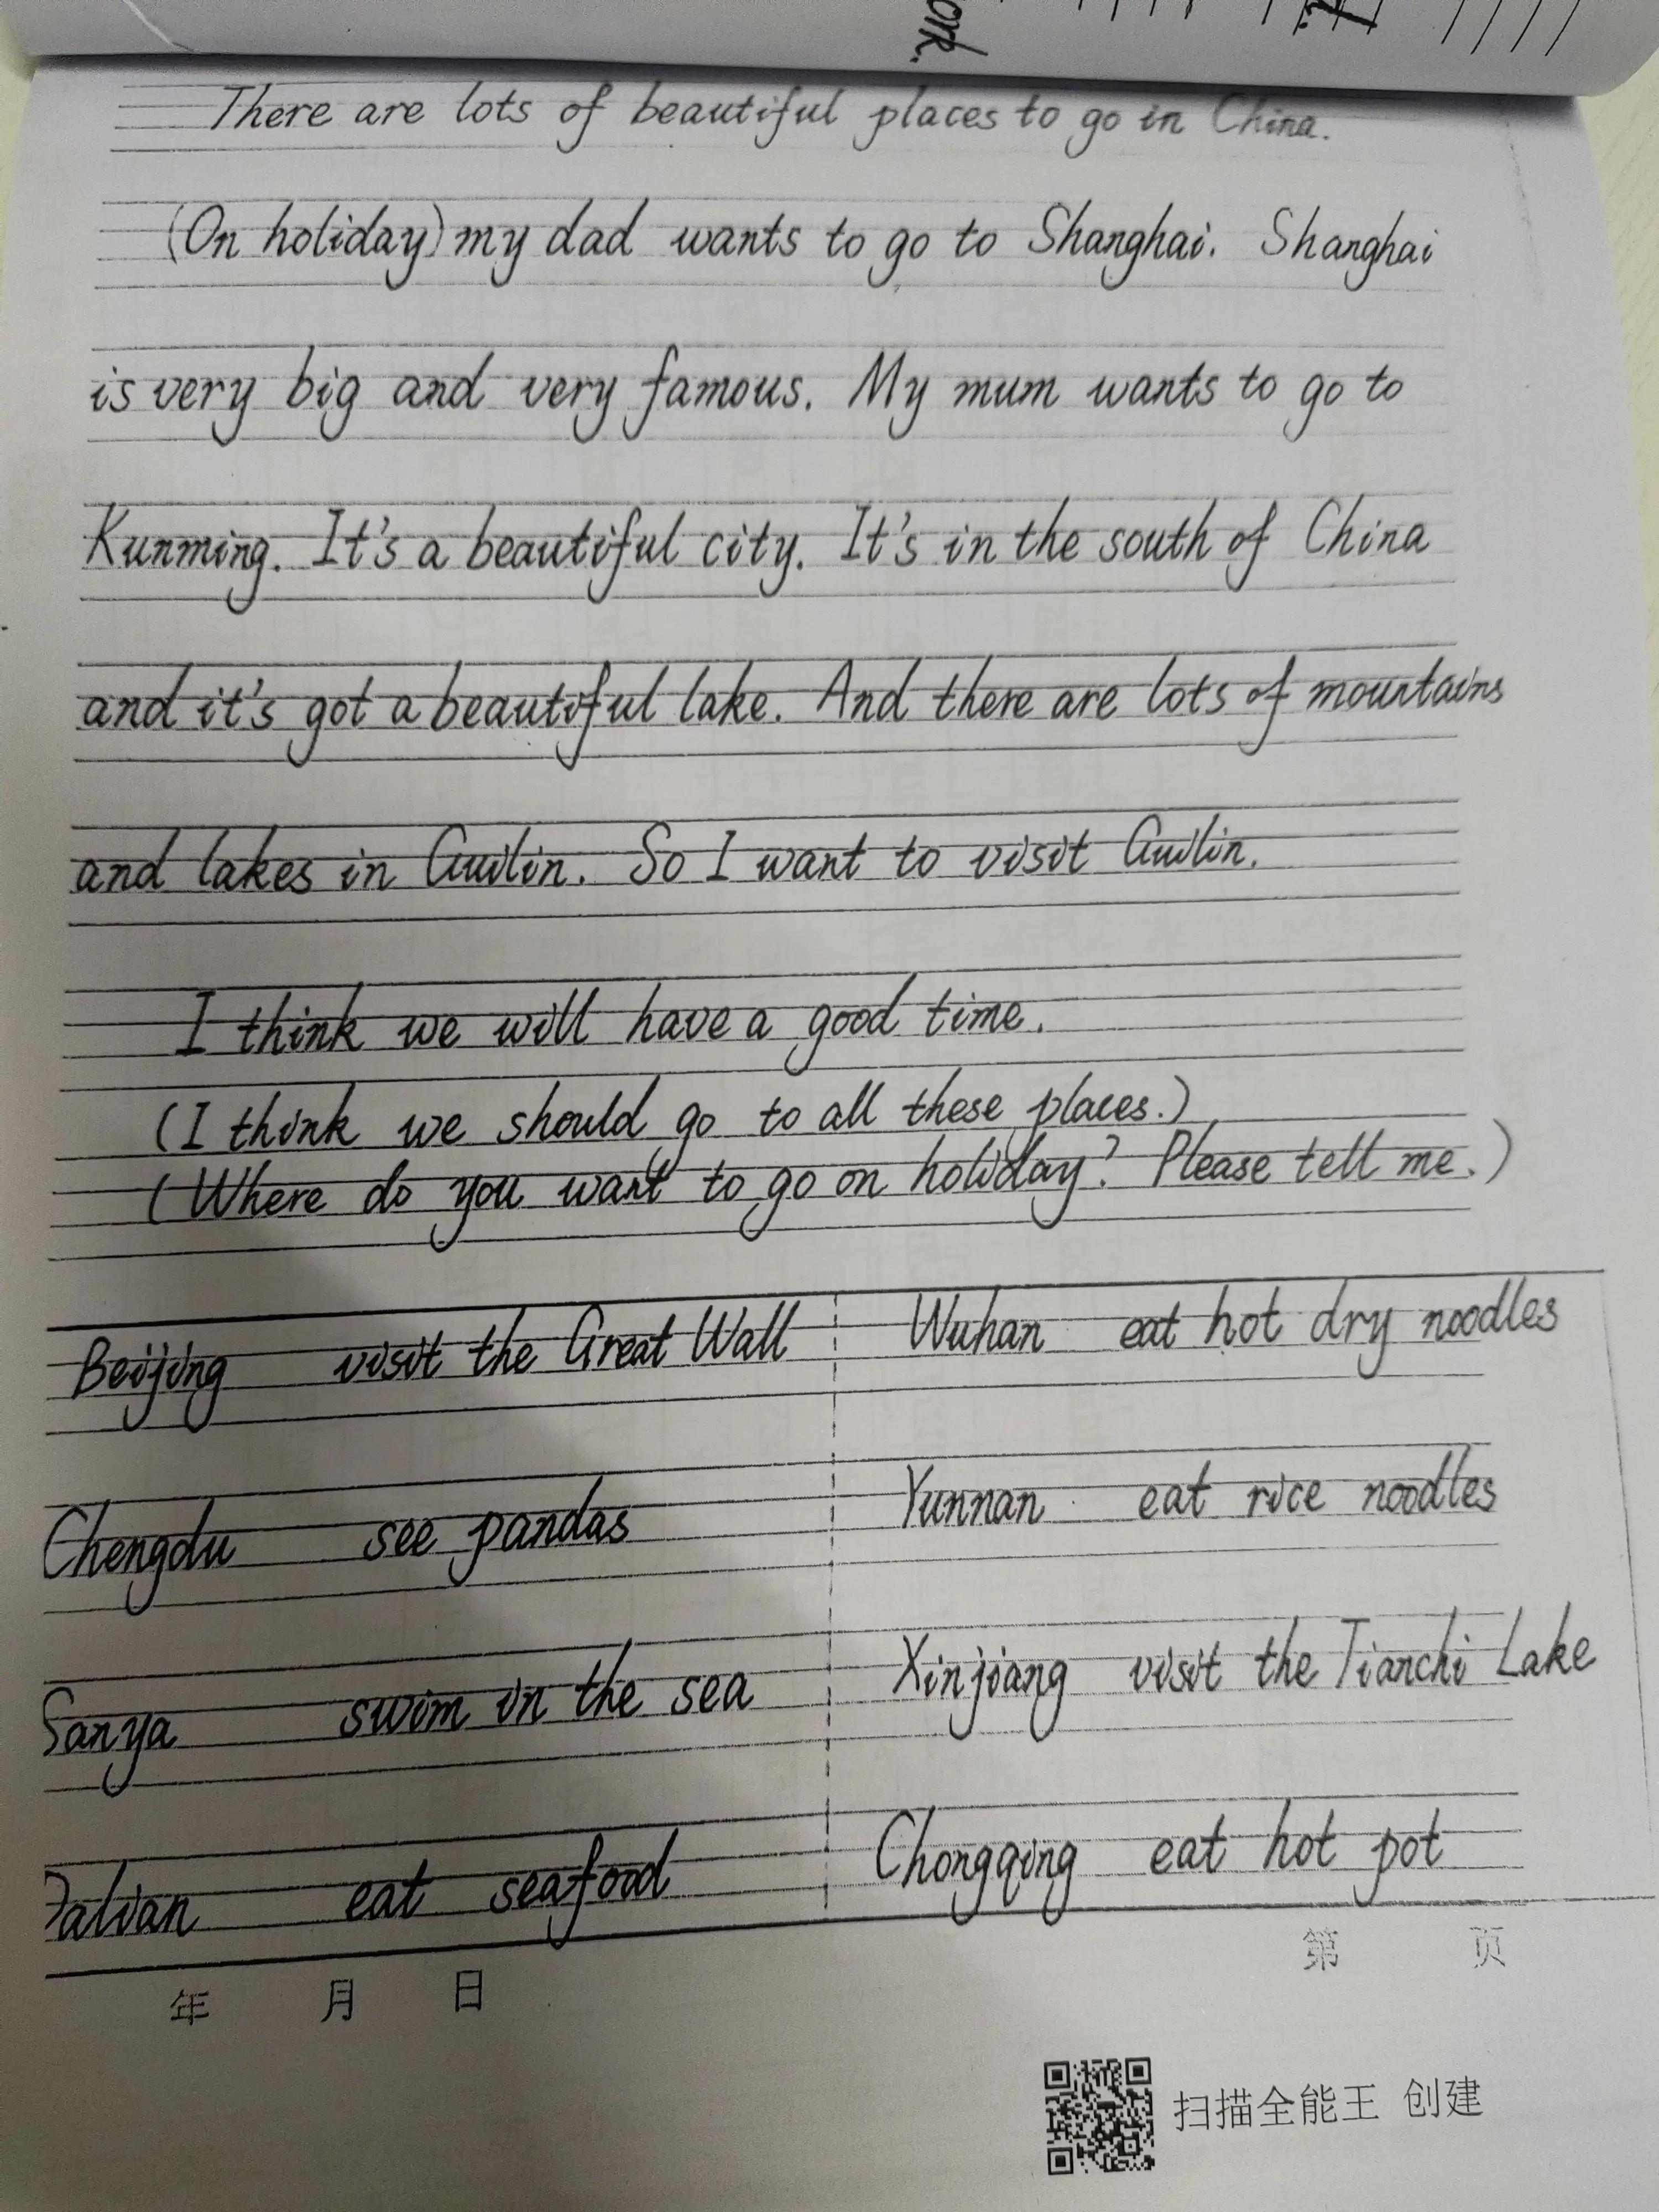 ork.
There are lots of beautiful places to go in China.
(On holiday) my dad wants to go to Shanghai. Shanghai
is very big and very famous. My mum wants to go to
Kunming. It's a beautiful city. It's in the south of China
and it's got a beautiful lake. And there are lots of mountains
and lakes in Guilin. So I want to visit Guilin.
I think we will have a good time.
(I think we should go to all these places.)
(Where do you want to go on holiday? Please tell me.)
Beijing visit the Great Wall Wuhan eat hot dry noodles
Chengdu see pandas Yunnan eat rice noodles
Sanya swim in the sea Xinjiang visit the Tianchi Lake
Dalian eat seafood Chongqing eat hot pot
年 月 日 第 页
扫描全能王 创建